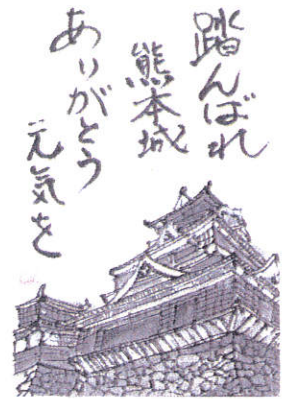 踏んばれ
熊本城
ありがとう
元気を